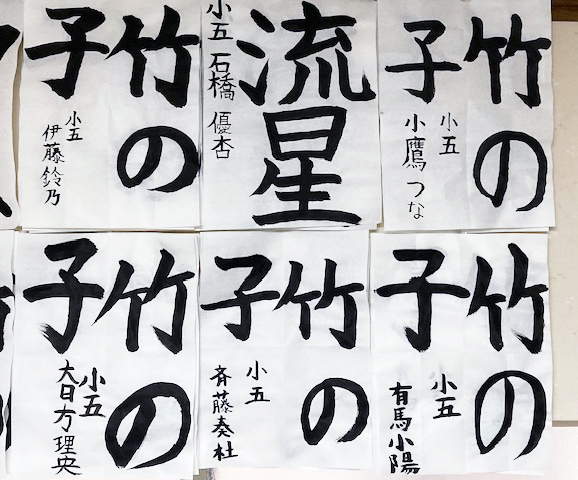 竹の
子
小五
伊藤鈴乃
流星
小五 石橋 優杏
竹の
子
小五
小鷹 つな
竹の
子
小五
大日方理央
竹の
子
小五
斉藤奏杜
竹の
子
小五
有馬小陽